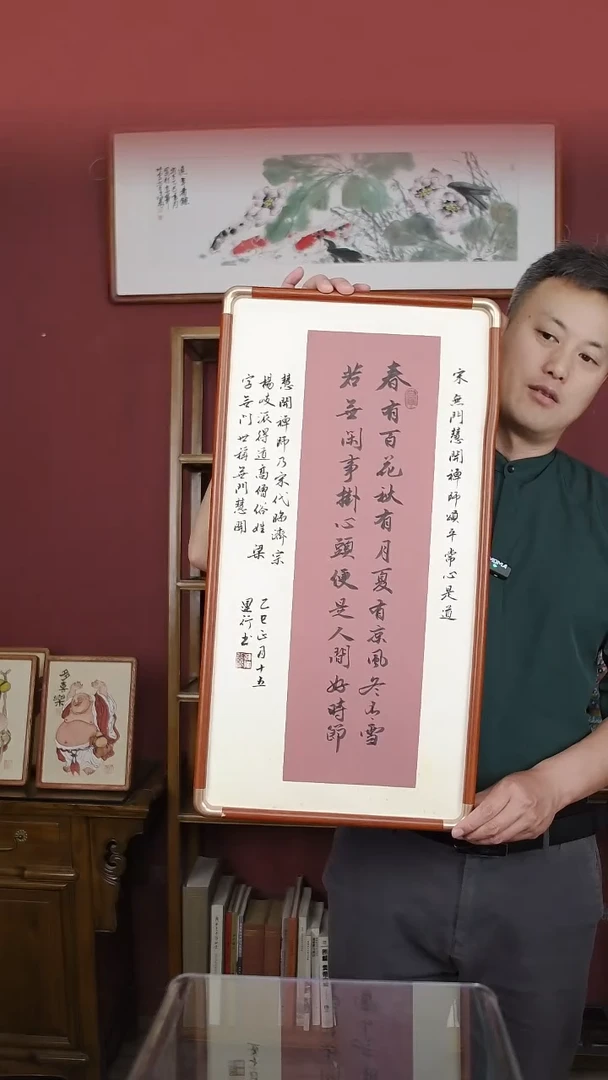 宋無門慧開禪師頌平常心是道
春有百花秋有月夏有凉風冬有雪
若無闲事掛心頭便是人間好時節
慧開禪師乃宋代臨濟宗
楊岐派得道高僧俗姓梁
字無門 世稱無門慧開
乙巳正月十五
墨行书
多喜樂